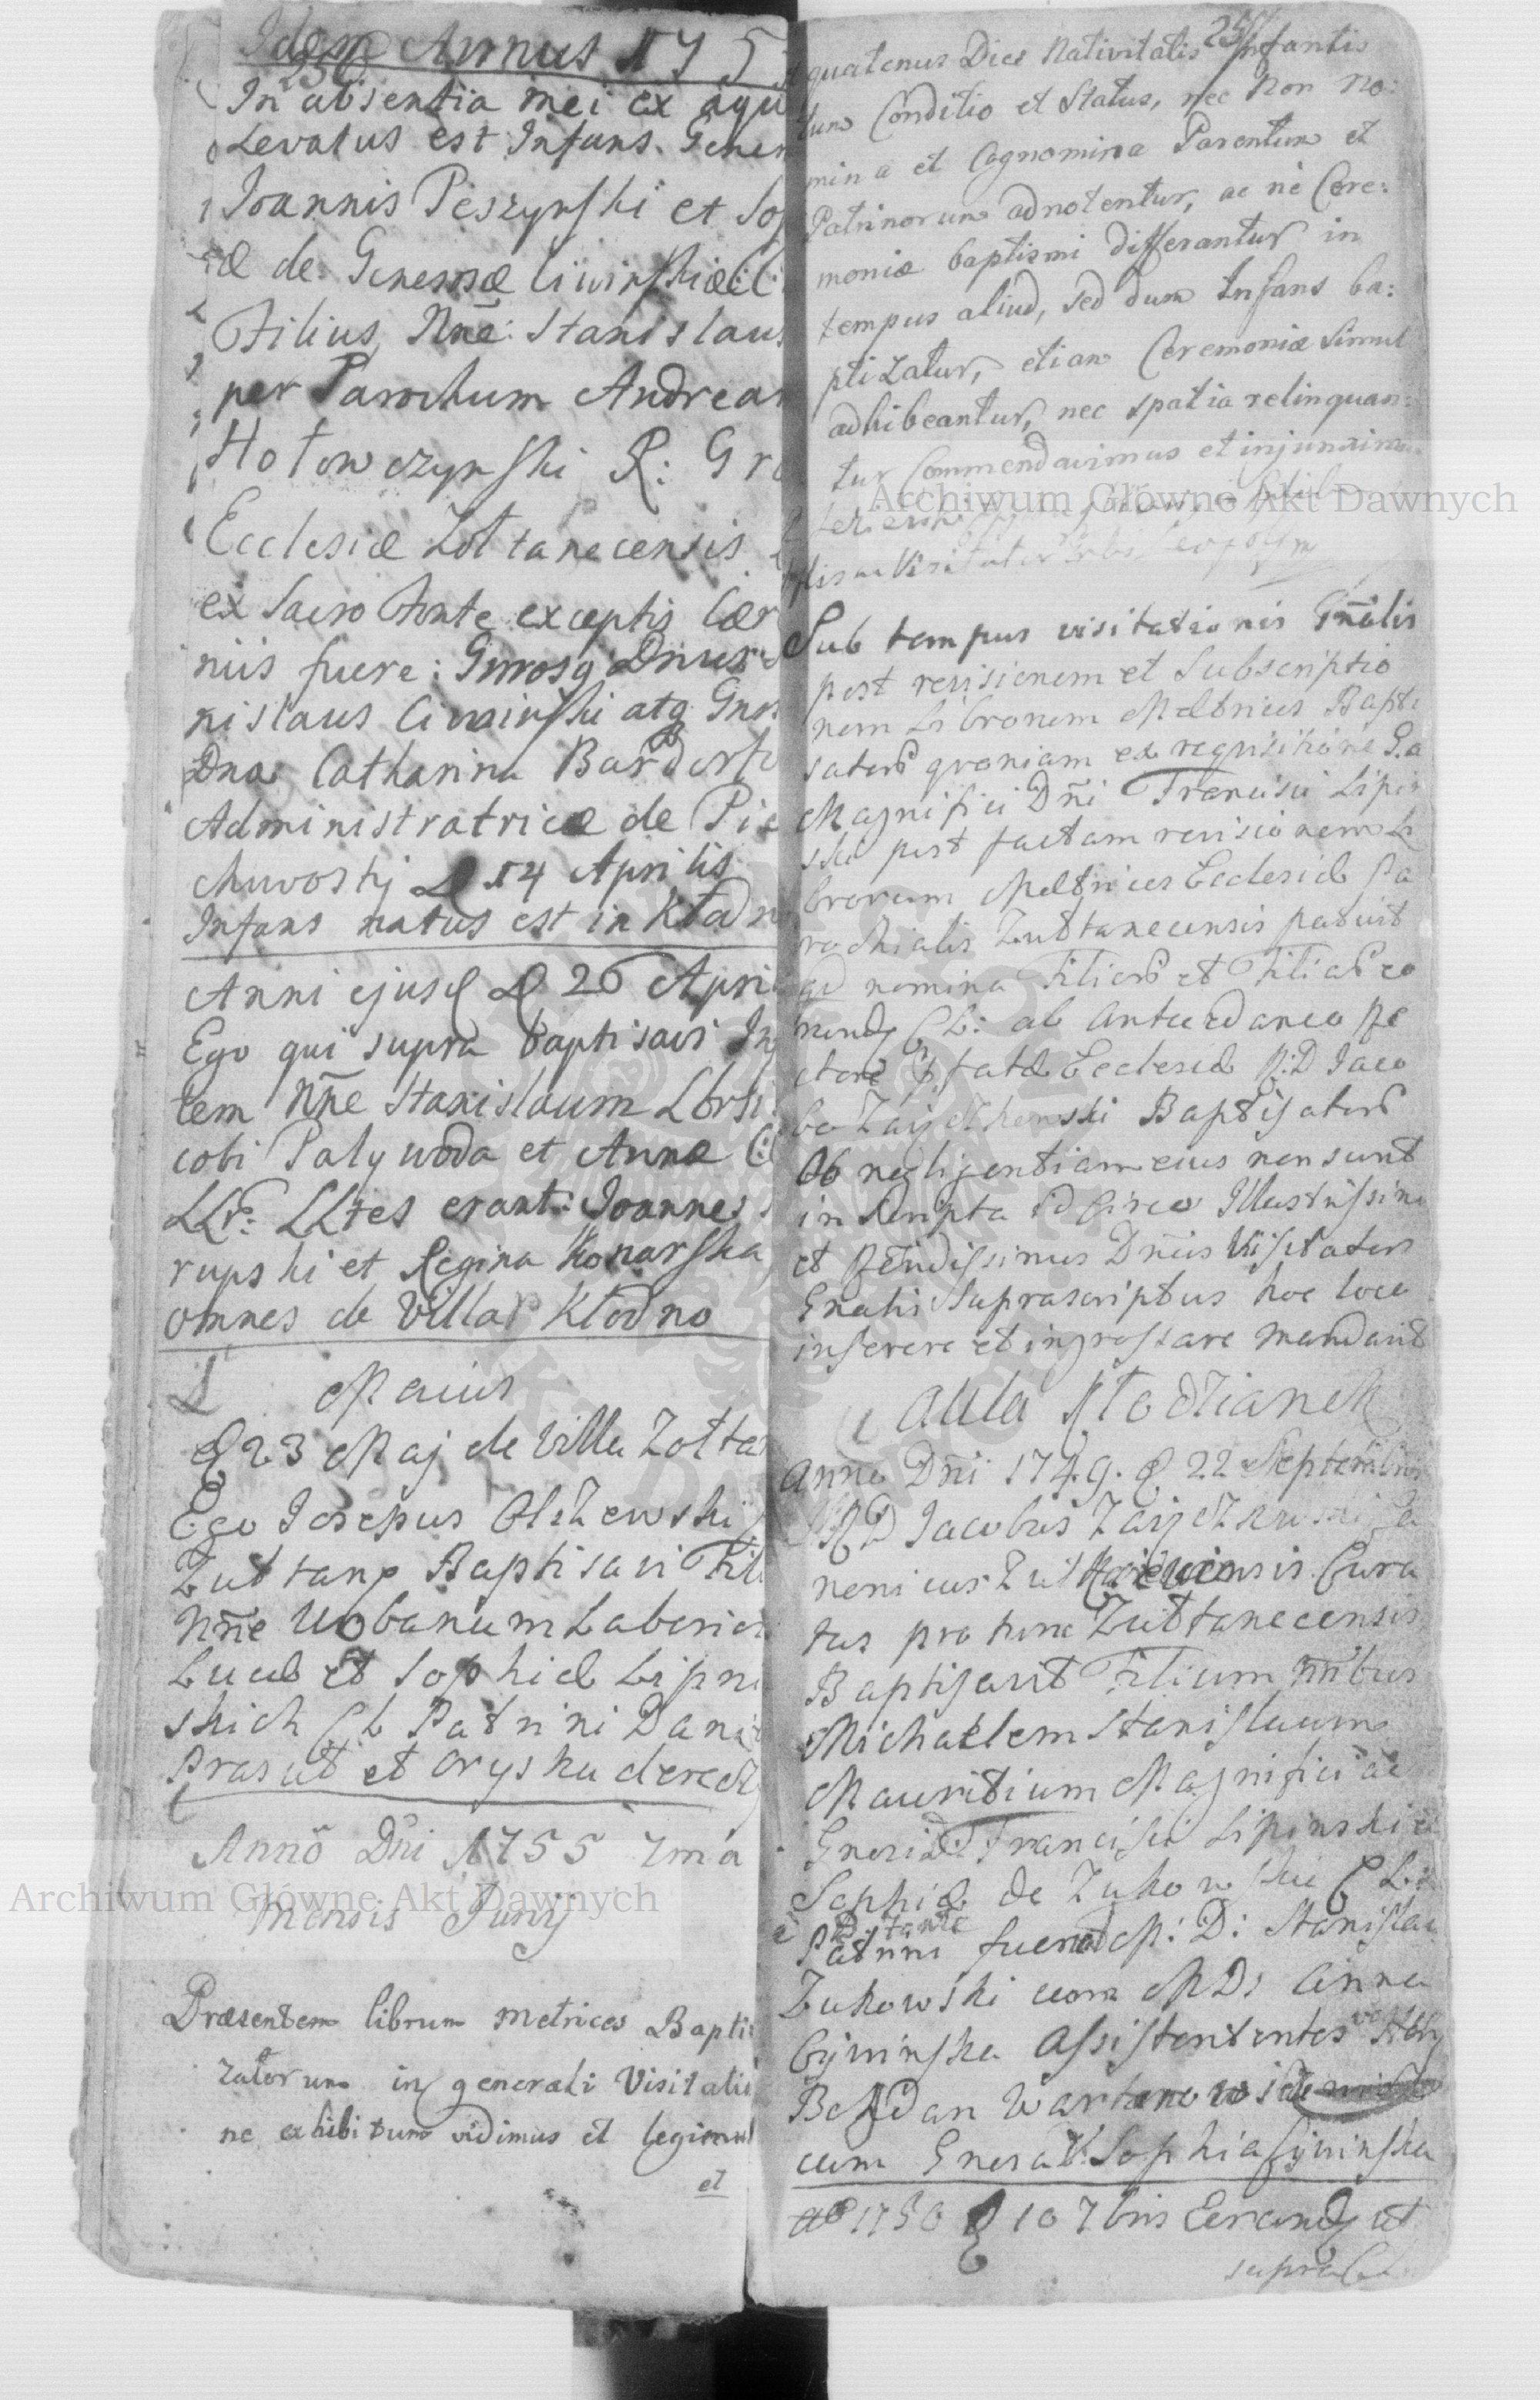 Idem Annus 175
250
In absentia mei ex aqu
Levatus est Infans Gener
Joannis Peszynski et Sop
æ de Generosæ Ciwinskiæ C:
Filius, Nne: Stanislaus
per Parochum Andream
Hotowczynski R: Gr
Ecclesiæ Zoltanecensis
ex Sacro Fonte exceptis Cær
niis fuere: Gnrosq Dnus
nislaus Ciwinski atq Gnr
Dna Catharina Bardosk
Administratricæ de Pie
chwosty D 14 Aprilis
Infans natus est in Kłodn
Anni ejusd D 26 Apri
Ego qui supra baptisavi In
tem Nne Stanislaum LLbrs
cobi Palywoda et Annæ C:
LLr: LLtes erant: Joannes
rupski et Regina Konarska
omnes de Villa Kłodno
Maius
D 23 Maj de Villa Zolta
Ego Josepus Olszewski
Zultanp Baptisavi Fili
Nne Urbanum Laborios
Lucæ et Sophiæ Lipni
skich CL Patrini Dani
Prasut et Oryszka derecz
Anno Dni 1755 7ma
Mensis Junÿ
Præsentem librum metrices Bapti
zatorum in generali Visitatio
ne exhibitum vidimus et legimus
et
quatenus Dies Nativitatis Infantis
tum Conditio et Status, nec non no:
mina et Cognomina Parentum et
Patrinorum adnotentur, ac ne Cere:
moniæ baptismi differantur in
tempus aliud, sed dum Infans ba:
ptizatur, etiam Ceremoniæ simul
adhibeantur, nec spatia relinquan:
tur Commendavimus et injunximus
Sub tempus visitationis Gnalis
post revisionem et Subscriptio
nem Librorum Metrices Bapti
sators quoniam ex requisitione G.a
Magnifici Dni Francisci Lipin
ski post factam revisionem Li
brorum Metrices Ecclesiæ Pa
rochialis Zultanecensis patuit
qd nomina Filiors et Filiars eo
rundq CL: ab Antecedaneo Re
ctore Pfatæ Ecclesiæ R:D Jaco
bo Zajetkowski Baptisators
Ob negligentiam eius non sunt
inscripta idcirco Illustrissimu
et Rendissimus Dnus Visitators
Gnalis Suprascriptus hoc loco
inserere et ingrossare mandavit
Aula Kłodzianek
Anno Dni 1749. D 22 Septembris
RD Jacobus Zajetkowski Ca
nonicus Cura
tus pro tunc Zultanecensis
Baptisavit Filium Nnibus
Michaelem Stanislaum
Mauritium Magnifici ac
Gnosi D: Francisci Lipinski et
Sophiæ de Zukowskie CL:
Patrini fuerunt M: D: Stanislau
Zukowski cum MDs Anna
Cywinska Assistentes
Bohdan Wartanowi
cum Gnosa V: Sophia Cywinska
Ao 1750 D 10 7bris Eerundq ut
supra CL
Archiwum Główne Akt Dawnych
Archiwum Główne Akt Dawnych